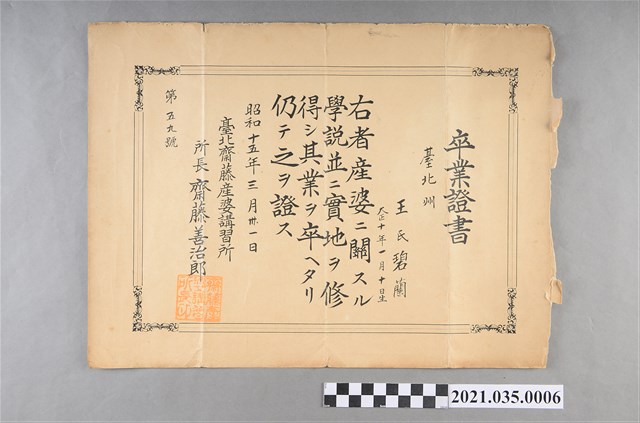 卒業證書
臺北州
王氏碧蘭
大正十年一月十日生
右者産婆ニ關スル
學説並ニ實地ヲ修
得シ其業ヲ卒ヘタリ
仍テ之ヲ證ス
昭和十五年三月卅一日
臺北齋藤産婆講習所
所長 齋藤善治郎
第五九號
2021.035.0006